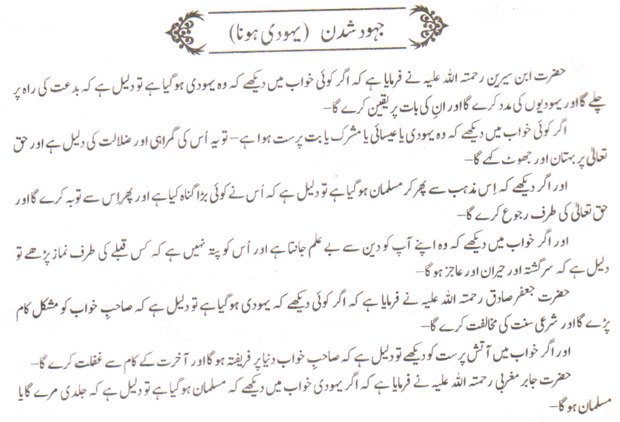 جہود شدن (یہودی ہونا)
حضرت ابن سیرین رحمتہ اللہ علیہ نے فرمایا ہے کہ اگر کوئی خواب میں دیکھے کہ وہ یہودی ہوگیا ہے تو دلیل ہے کہ بدعت کی راہ پر
چلے گا اور یہودیوں کی مدد کرے گا اور ان کی بات پر یقین کرے گا-
اگر کوئی خواب میں دیکھے کہ وہ یہودی یا عیسائی یا مشرک یا بت پرست ہوا ہے- تو یہ اُس کی گمراہی اور ضلالت کی دلیل ہے اور حق
تعالیٰ پر بہتان اور جھوٹ کہے گا-
اور اگر دیکھے کہ اِس مذہب سے پھر کر مسلمان ہوگیا ہے تو دلیل ہے کہ اُس نے کوئی بڑا گناہ کیا ہے اور پھر اِس سے توبہ کرے گا اور
حق تعالیٰ کی طرف رجوع کرے گا-
اور اگر خواب میں دیکھے کہ وہ اپنے آپ کو دین سے بے علم جانتا ہے اور اُس کو پتہ نہیں ہے کہ کس قبلے کی طرف نماز پڑھے تو
دلیل ہے کہ سرگشتہ اور حیران اور عاجز ہوگا-
حضرت جعفر صادق رحمتہ اللہ علیہ نے فرمایا ہے کہ اگر کوئی دیکھے کہ یہودی ہوگیا ہے تو دلیل ہے کہ صاحبِ خواب کو مشکل کام
پڑے گا اور شرعی سنت کی مخالفت کرے گا-
اور اگر خواب میں آتش پرست کو دیکھے تو دلیل ہے کہ صاحبِ خواب دنیا پر فریفتہ ہوگا اور آخرت کے کام سے غفلت کرے گا-
حضرت جابر مغربی رحمتہ اللہ علیہ نے فرمایا ہے کہ اگر یہودی خواب میں دیکھے کہ مسلمان ہوگیا ہے تو دلیل ہے کہ جلدی مرے گا یا
مسلمان ہوگا-